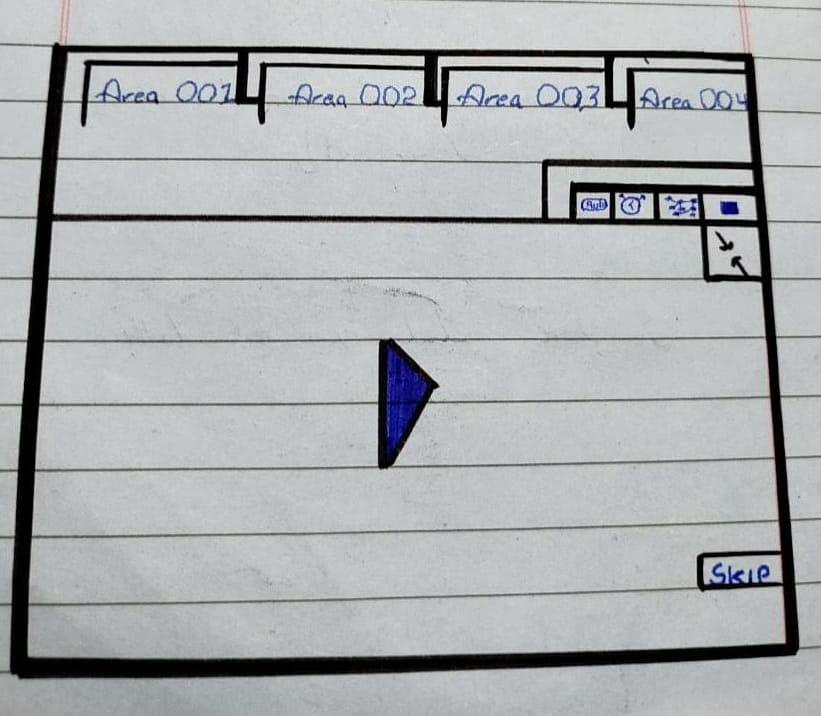 Area 001
Area 002
Area 003
Area 004
Skip